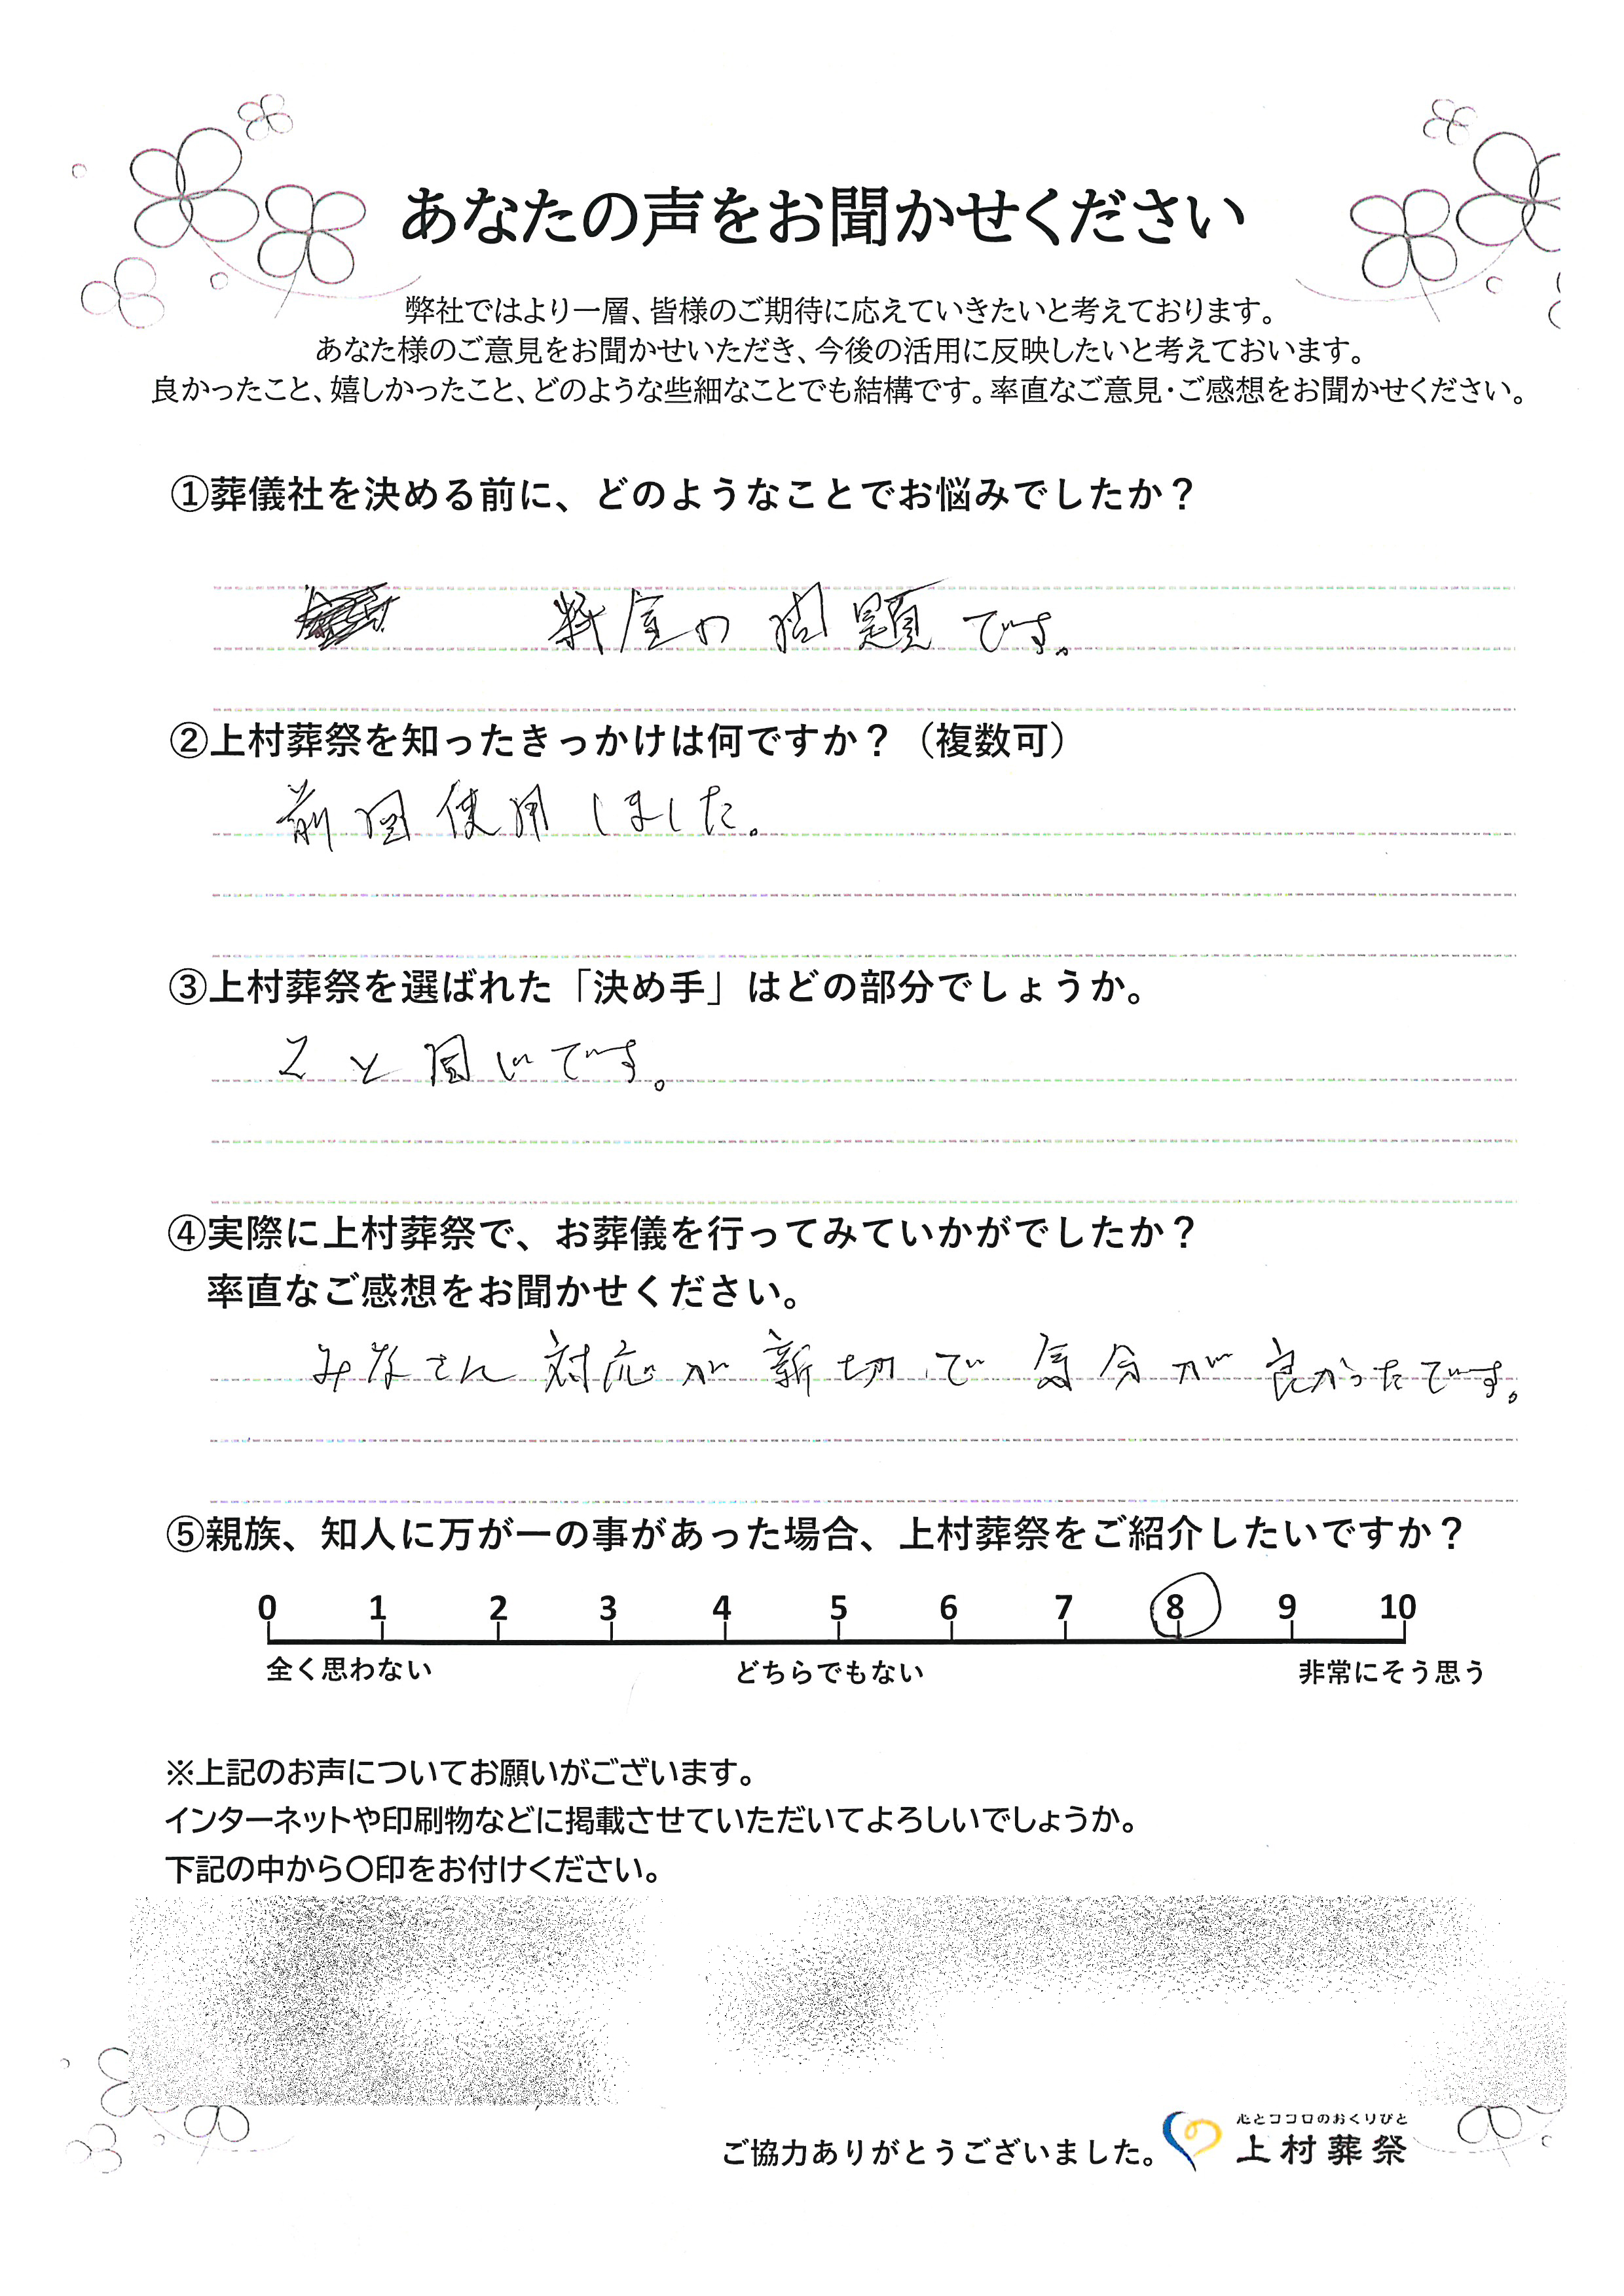 あなたの声をお聞かせください
弊社ではより一層、皆様のご期待に応えていきたいと考えております。
あなた様のご意見をお聞かせいただき、今後の活用に反映したいと考えておいます。
良かったこと、嬉しかったこと、どのような些細なことでも結構です。率直なご意見・ご感想をお聞かせください。
①葬儀社を決める前に、どのようなことでお悩みでしたか？
料金の問題です。
②上村葬祭を知ったきっかけは何ですか？（複数可）
前回使用しました。
③上村葬祭を選ばれた「決め手」はどの部分でしょうか。
2と同じです。
④実際に上村葬祭で、お葬儀を行ってみていかがでしたか？
率直なご感想をお聞かせください。
みなさん対応が新切で気分が良かったです。
⑤親族、知人に万が一の事があった場合、上村葬祭をご紹介したいですか？
0 1 2 3 4 5 6 7 8 9 10
全く思わない どちらでもない 非常にそう思う
※上記のお声についてお願いがございます。
インターネットや印刷物などに掲載させていただいてよろしいでしょうか。
下記の中から〇印をお付けください。
心とココロのおくりびと
ご協力ありがとうございました。 上村葬祭